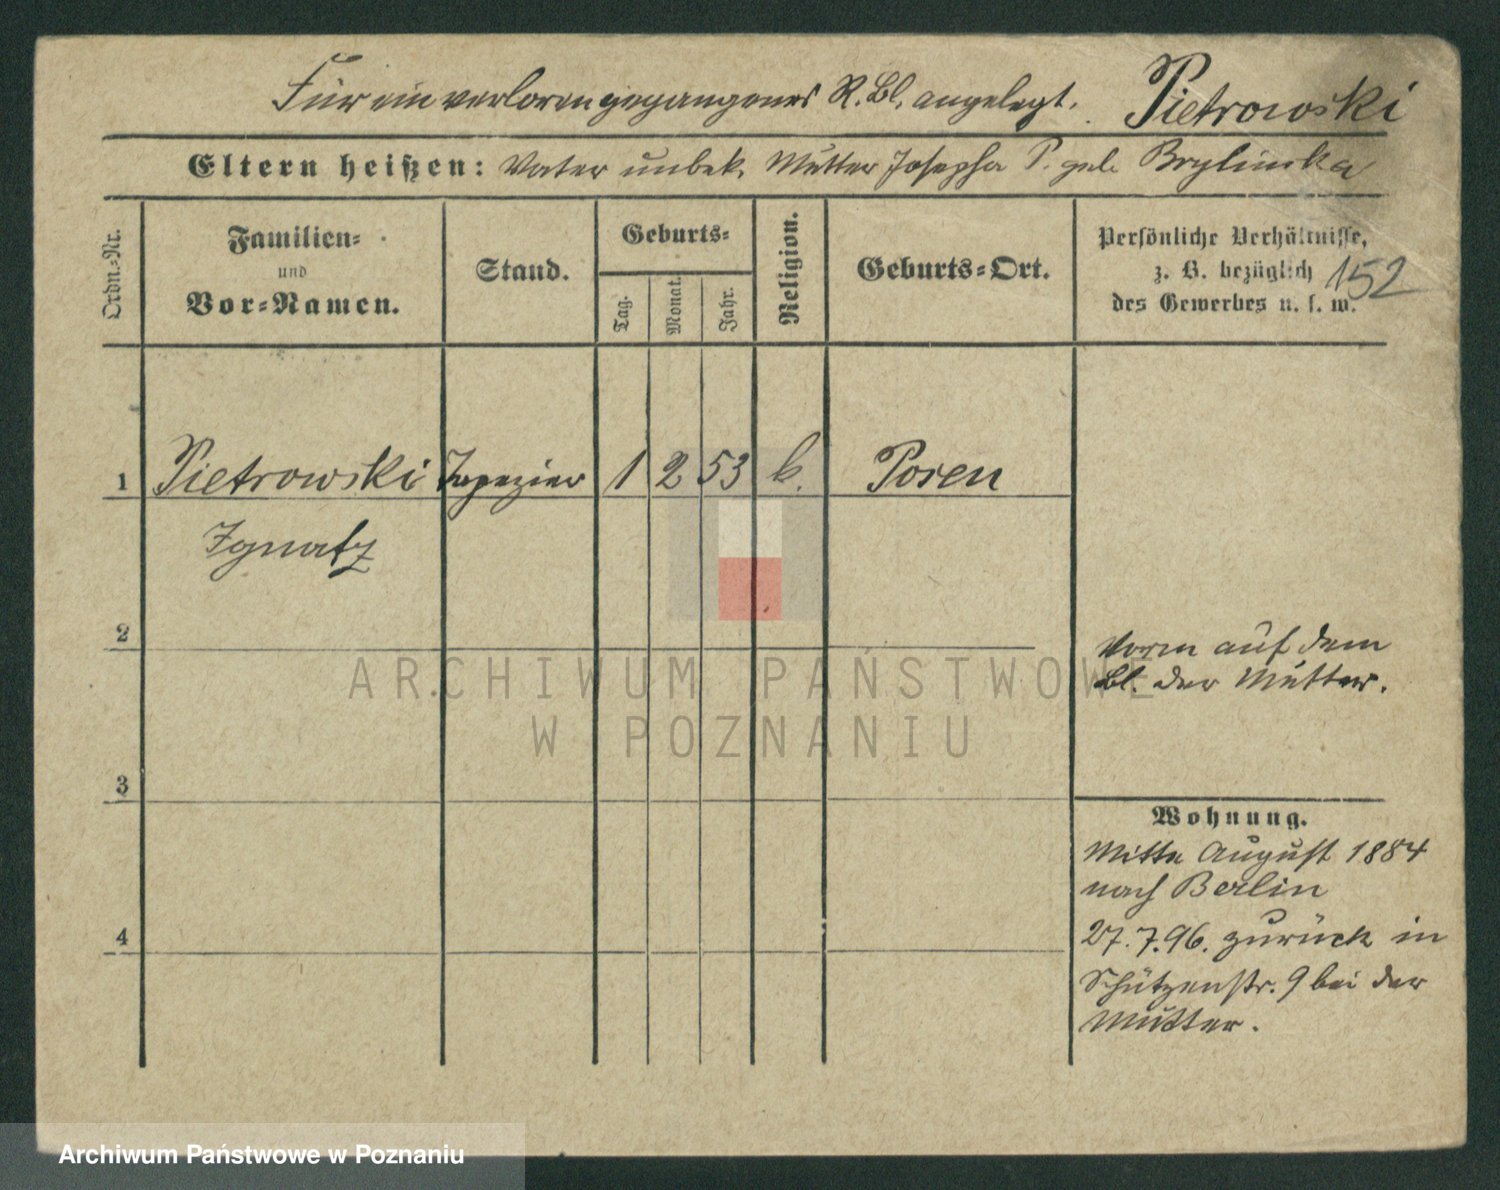 Für ein verloren gegangenes R. Bl. angelegt. Pietrowski
Eltern heißen: Vater unbek. Mutter Josepha P. geb. Brylinska
Ordn.-Nr.
Familien-
und
Vor-Namen.
Stand.
Geburts-
Tag.
Monat.
Jahr.
Religion.
Geburts-Ort.
Persönliche Verhältnisse,
z. B. bezüglich
des Gewerbes u. s. w.
152
1 Pietrowski Tapezier 1 2 53 k. Posen
Ignatz
2
Vorm auf dem
Bl. der Mutter.
ARCHIWUM PAŃSTWOWE
W POZNANIU
3
Wohnung.
Mitte August 1884
nach Berlin
4
27.7.96. zurück in
Schützenstr. 9 bei der
Mutter.
Archiwum Państwowe w Poznaniu